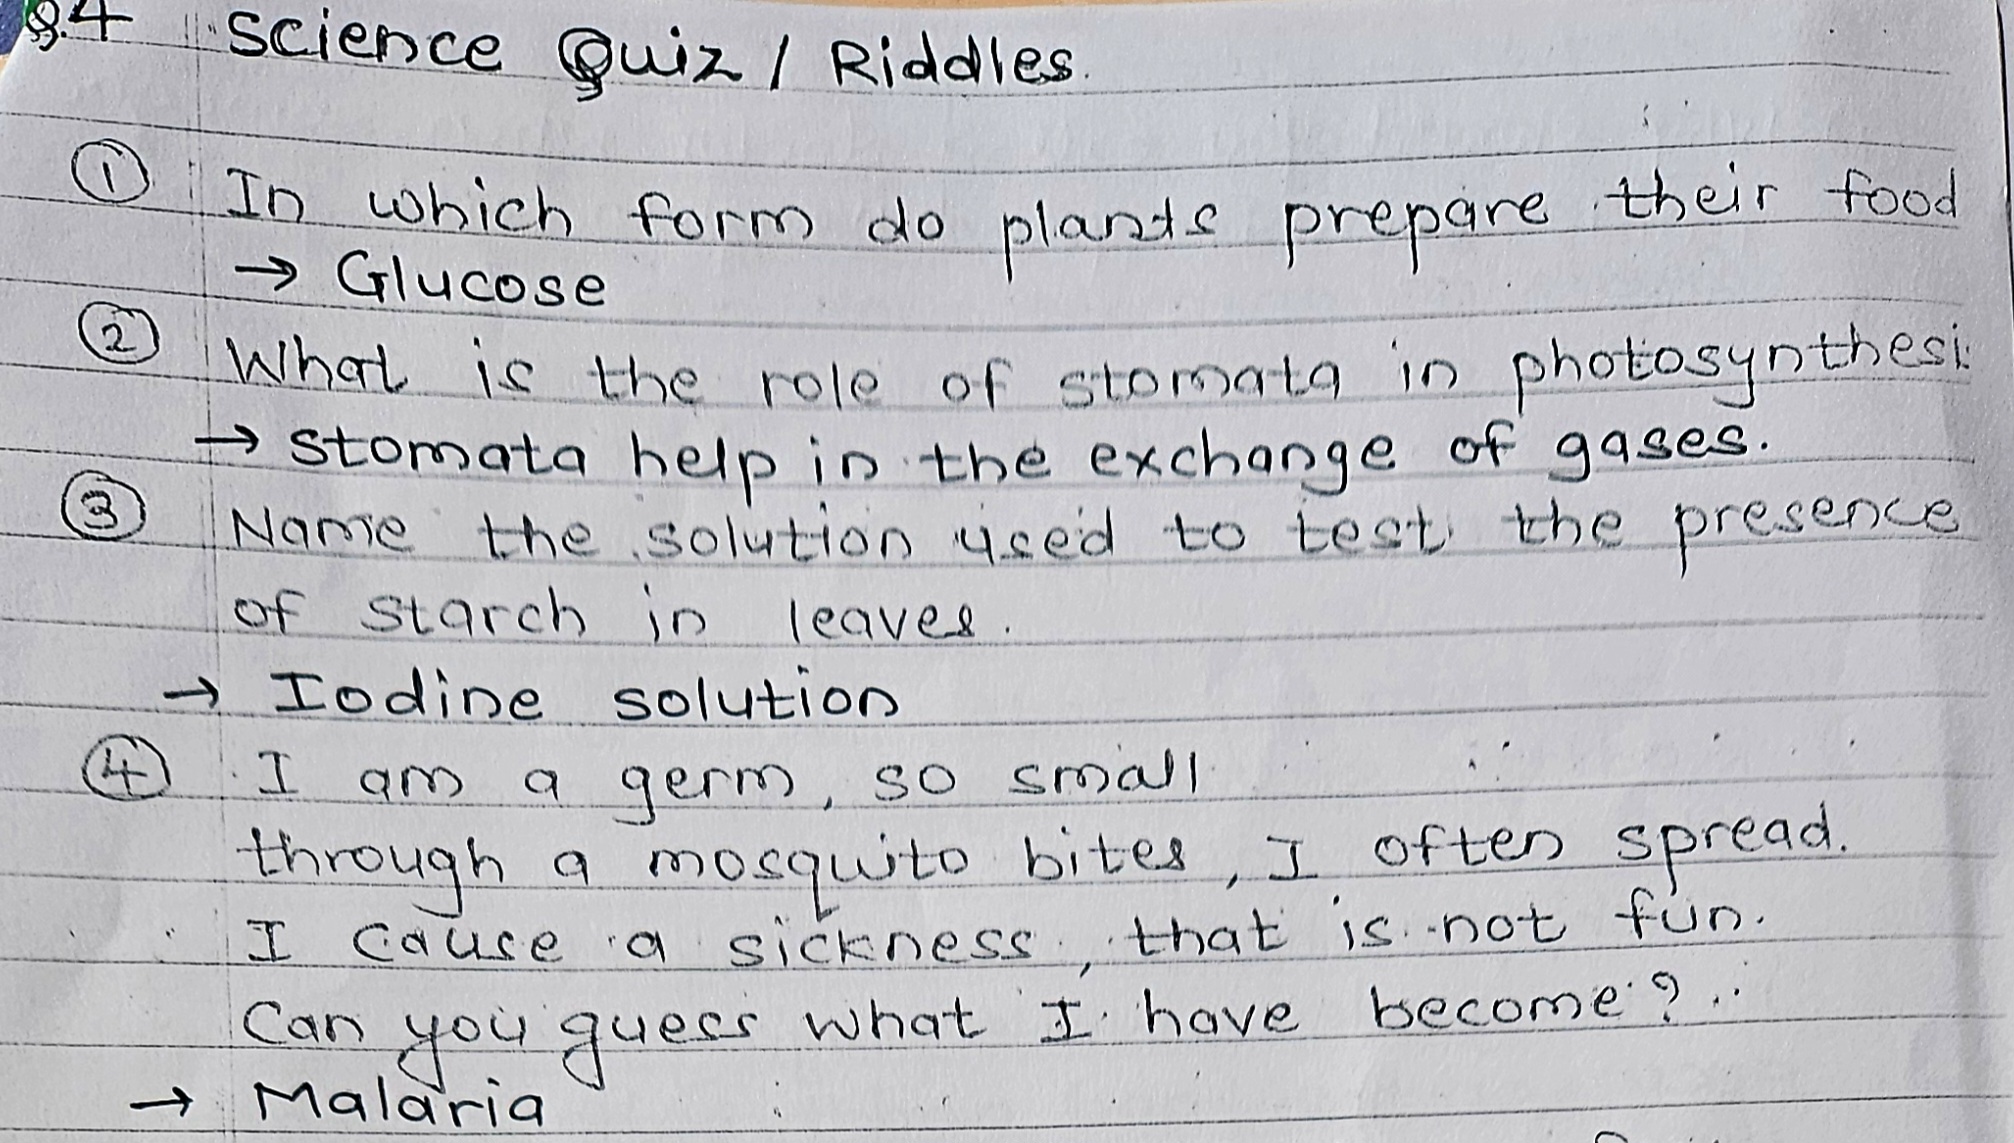 Q.4 Science Quiz / Riddles.
① In which form do plants prepare their food
→ Glucose
② What is the role of stomata in photosynthesi
→ Stomata help in the exchange of gases.
③ Name the solution used to test the presence
of starch in leaves.
→ Iodine solution
④ I am a germ, so small
through a mosquito bites, I often spread.
I cause a sickness, that is not fun.
Can you guess what I have become?
→ Malaria